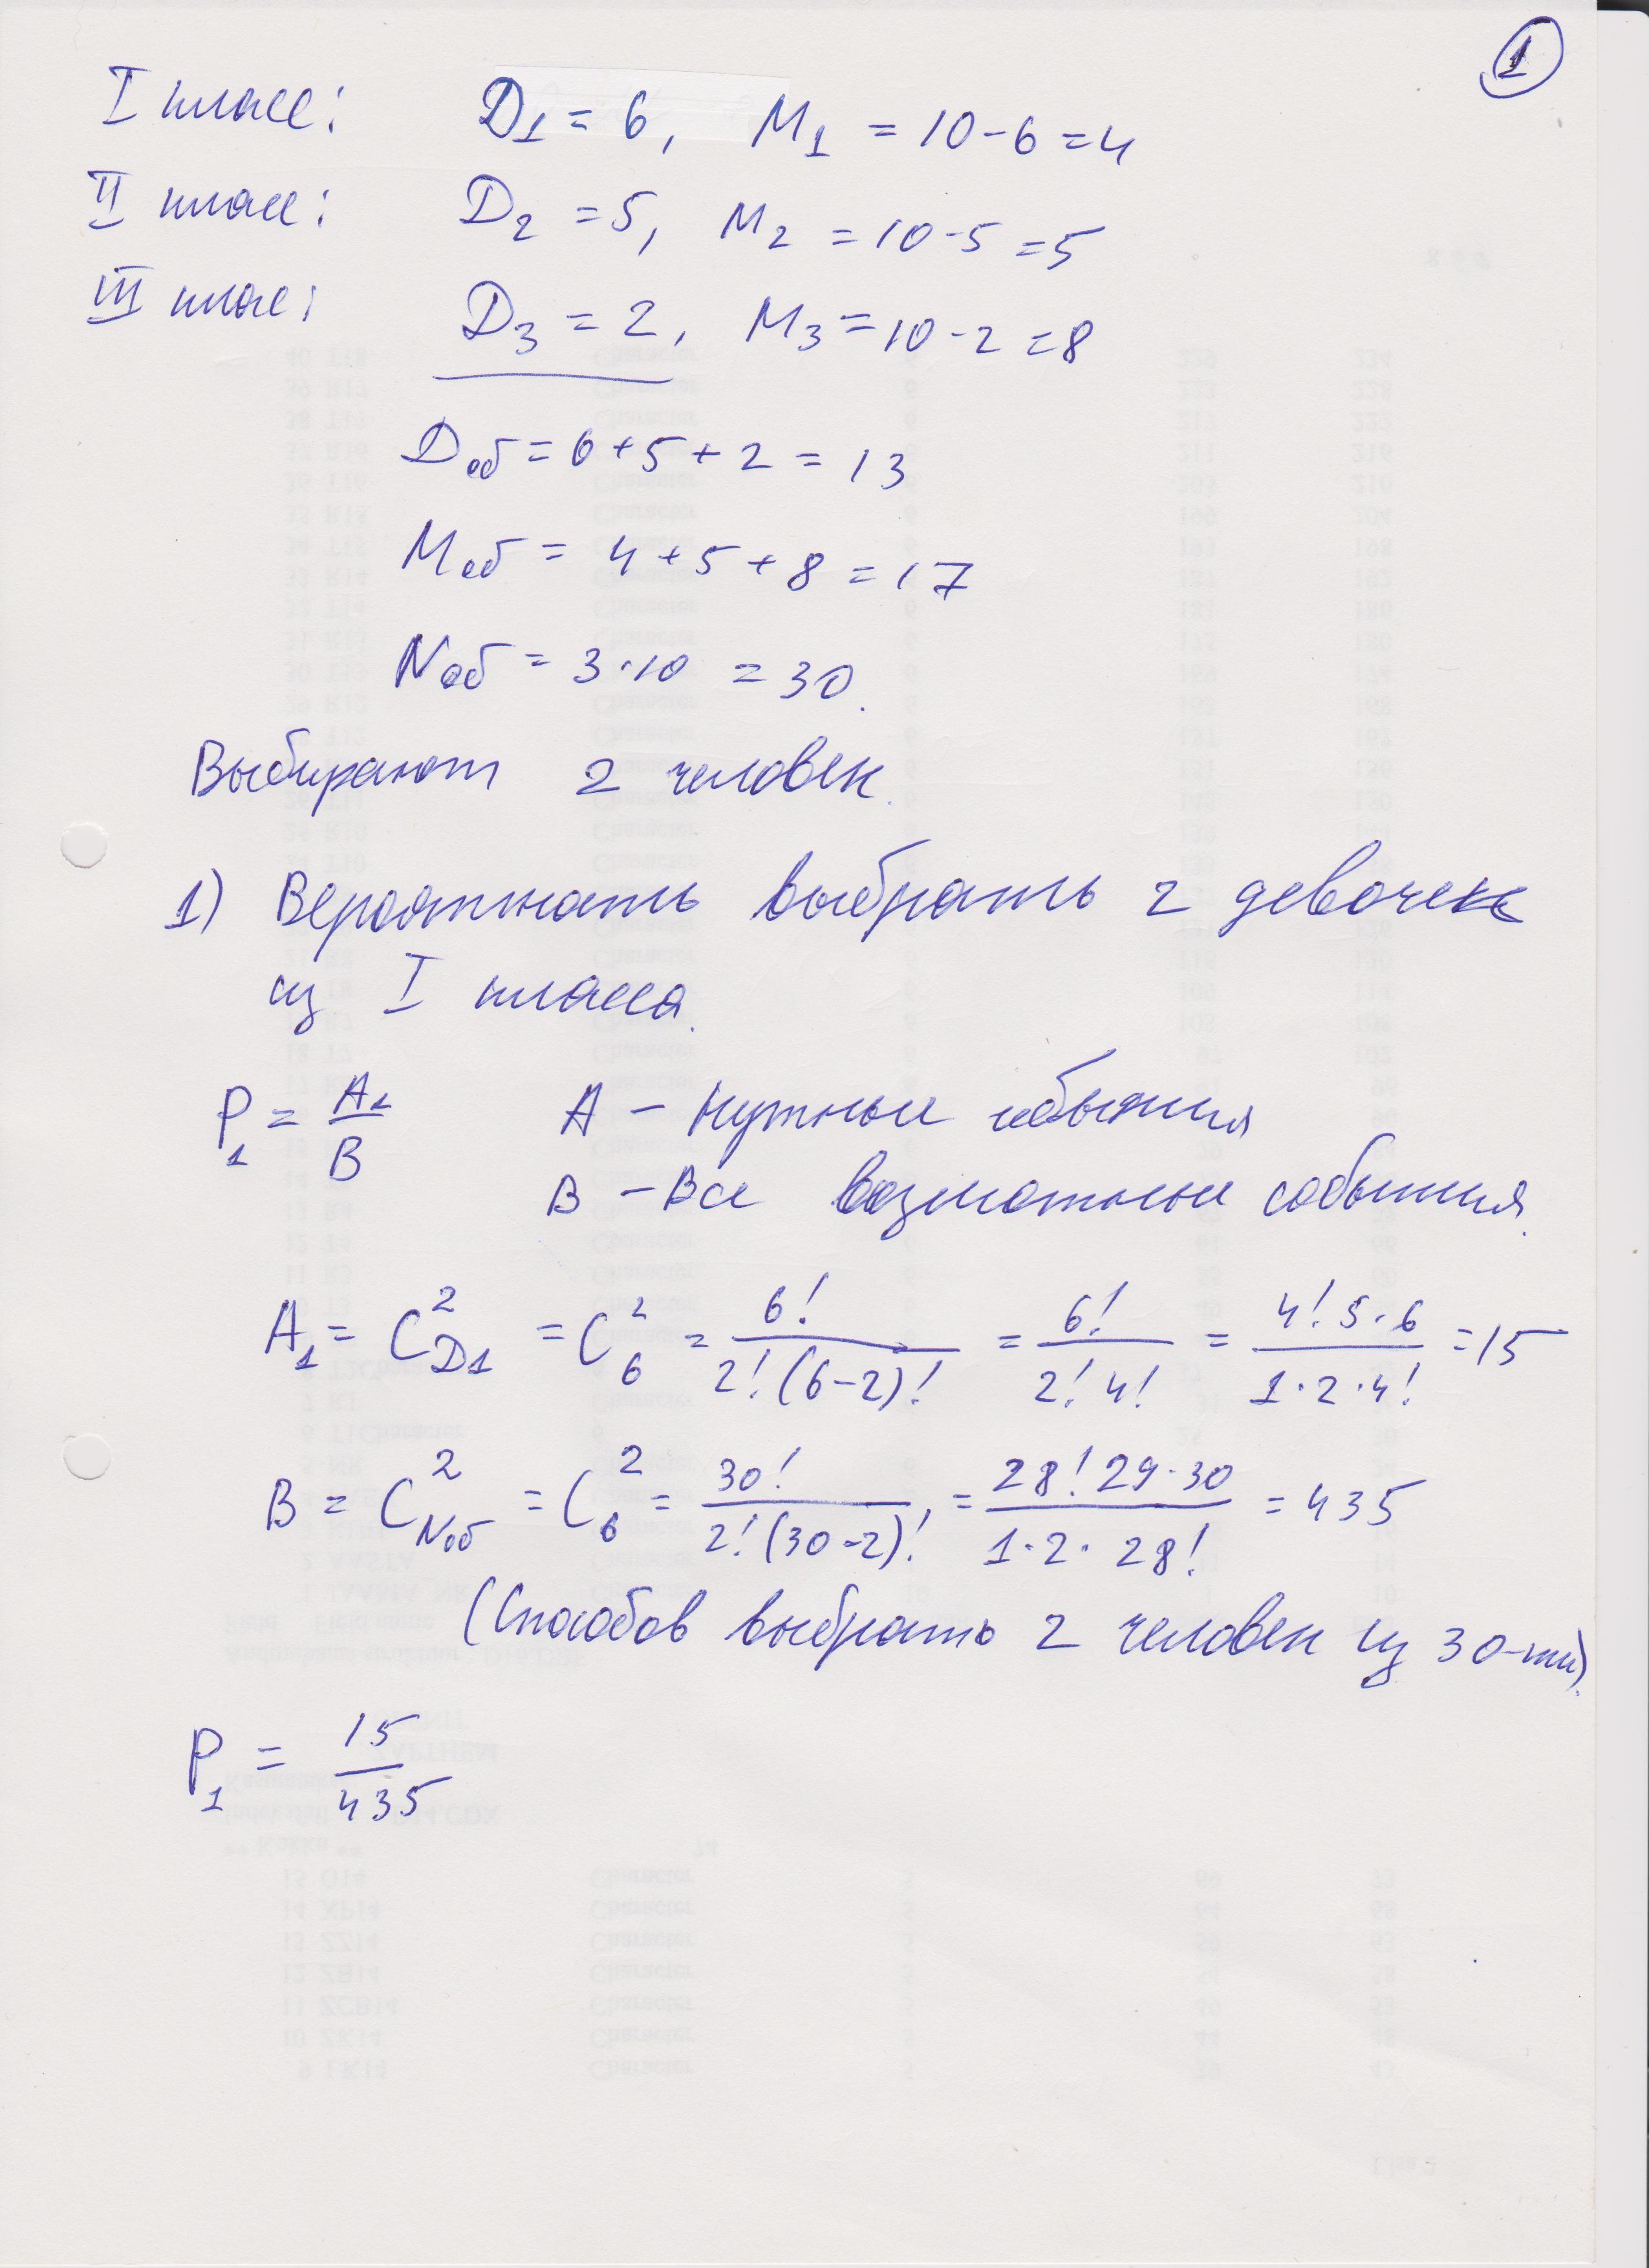 1
I класс: D₁ = 6, M₁ = 10-6=4
II класс: D₂ = 5, M₂ = 10-5=5
III клас: D₃ = 2, M₃ = 10-2=8
Dоб = 6+5+2 = 13
Mоб = 4+5+8 = 17
Nоб = 3·10 = 30.
Выбирают 2 человек.
1) Вероятность выбрать 2 девочек
из I класса.
P₁ = A₁/B A – нужные события
B – Все возможные события.
A₁ = C²_D1 = C²_6 = 6!/(2!(6-2)!) = 6!/(2! 4!) = (4! 5·6)/(1·2·4!) = 15
B = C²_Nоб = C²_6 = 30!/(2!(30-2)!) = (28! 29·30)/(1·2·28!) = 435
(Способов выбрать 2 человек из 30-ти).
P₁ = 15/435